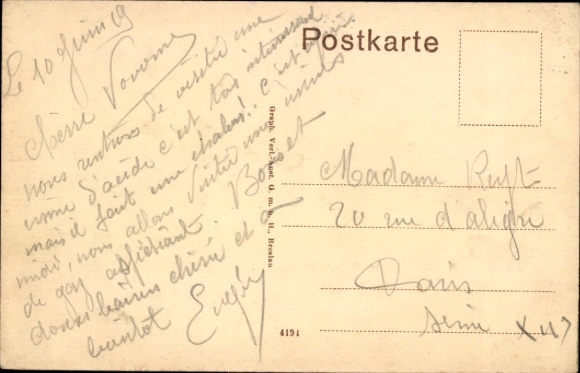 Le 10 Juin 19
Chère Vovonne
nous rentrons de visiter une
usine d'acide c'est très intéressant
mais il fait une chaleur! c'est
midi, nous allons visiter une usine
de gaz asphixiant. Bonnet
doux baisers chérie et à
bientôt
Postkarte
Graph. Verl.-Anst. G. m. b. H., Breslau
4191
Madame
20 rue d'aligre
Paris
Seine